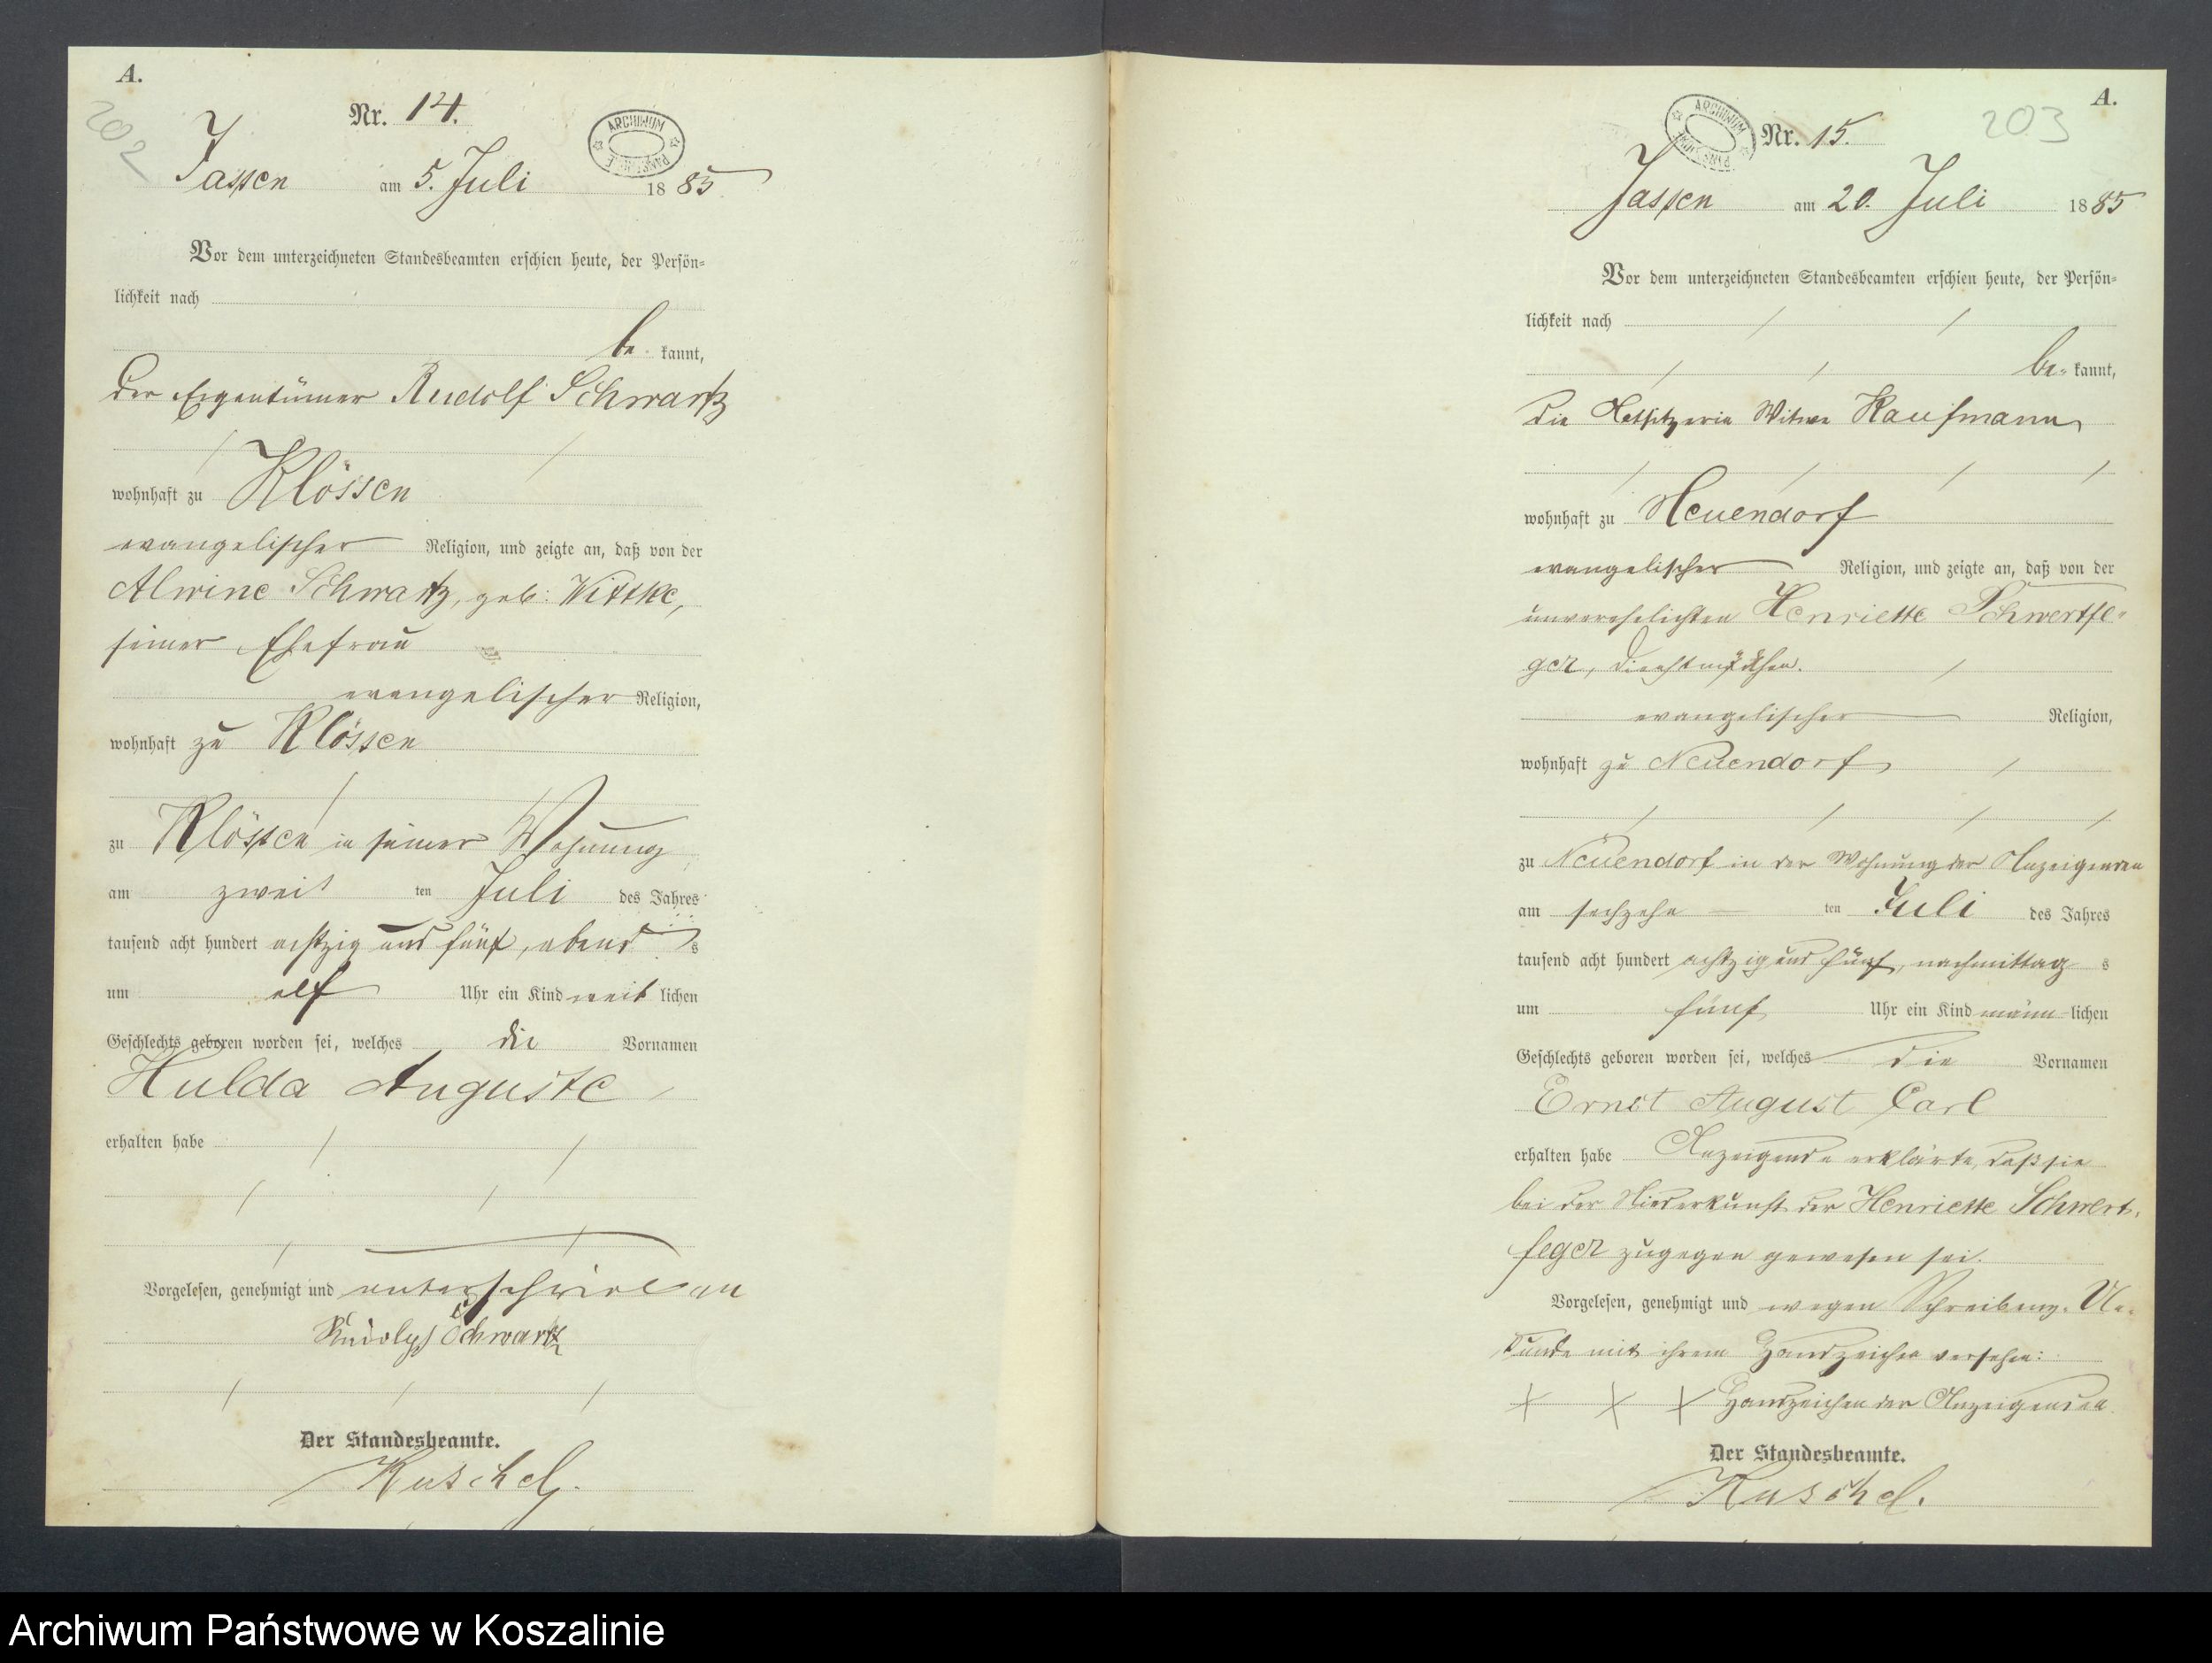 A.
202
Nr. 14.
ARCHIWUM PAŃSTWOWE
Jassen am 5. Juli 1885
Vor dem unterzeichneten Standesbeamten erschien heute, der Persön-
lichkeit nach
be kannt,
der Eigentümer Rudolf Schwartz
wohnhaft zu Klössen
evangelischer Religion, und zeigte an, daß von der
Alwine Schwartz, geb: Wittke,
seiner Ehefrau
evangelischer Religion,
wohnhaft zu Klössen
zu Klössen in seiner Wohnung
am zweit ten Juli des Jahres
tausend acht hundert achtzig und fünf, abend s
um elf Uhr ein Kind weib lichen
Geschlechts geboren worden sei, welches die Vornamen
Hulda Auguste
erhalten habe
Vorgelesen, genehmigt und unterschrieben
Rudolph Schwartz
Der Standesbeamte.
Kuschel.
A.
203
ARCHIWUM PAŃSTWOWE
Nr. 15.
Jassen am 20. Juli 1885
Vor dem unterzeichneten Standesbeamten erschien heute, der Persön-
lichkeit nach
be- kannt,
die Witwe Kaufmann
wohnhaft zu Neuendorf
evangelischer Religion, und zeigte an, daß von der
unverehelichten Henriette Schwertfe-
ger, Dienstmädchen.
evangelischer Religion,
wohnhaft zu Neuendorf
zu Neuendorf in der Wohnung der Anzeigenden
am sechzehn ten Juli des Jahres
tausend acht hundert achtzig und fünf, nachmittag s
um fünf Uhr ein Kind männ lichen
Geschlechts geboren worden sei, welches die Vornamen
Ernst August Carl
erhalten habe Anzeigende erklärte, daß sie
bei der Niederkunft der Henriette Schwert-
feger zugegen gewesen sei.
Vorgelesen, genehmigt und wegen Schreibens-Un-
kunde mit ihrem Handzeichen versehen:
+ + + Handzeichen der Anzeigenden
Der Standesbeamte.
Kuschel.
Archiwum Państwowe w Koszalinie